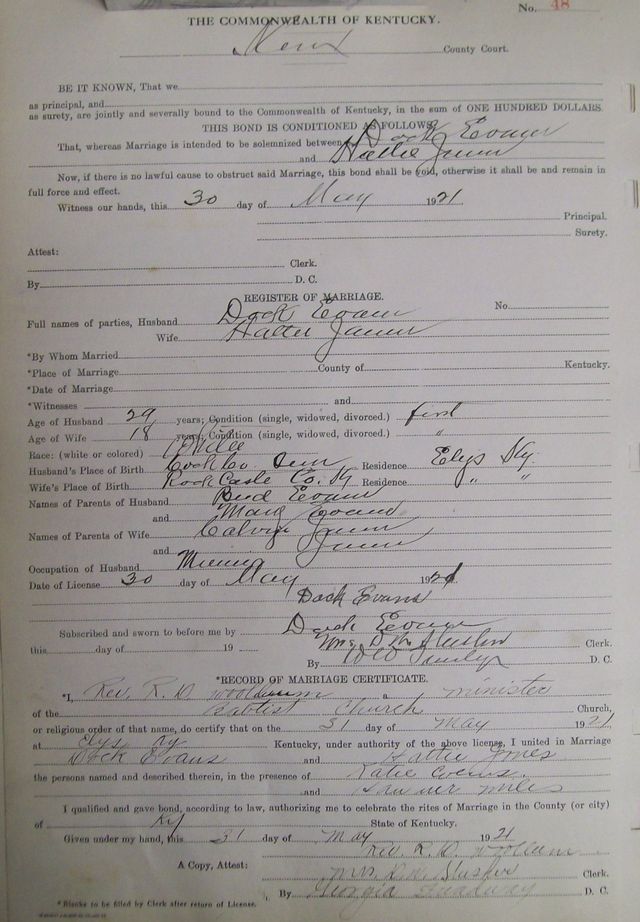 No. 48
THE COMMONWEALTH OF KENTUCKY.
Knox County Court.
BE IT KNOWN, That we
as principal, and
as surety, are jointly and severally bound to the Commonwealth of Kentucky, in the sum of ONE HUNDRED DOLLARS.
THIS BOND IS CONDITIONED AS FOLLOWS:
That, whereas Marriage is intended to be solemnized between Dock Evans
and Hattie Jones
Now, if there is no lawful cause to obstruct said Marriage, this bond shall be void, otherwise it shall be and remain in
full force and effect.
Witness our hands, this 30 day of May 1921
Principal.
Surety.
Attest:
Clerk.
By D. C.
REGISTER OF MARRIAGE.
Full names of parties, Husband Dock Evans No.
Wife Hattie Jones
*By Whom Married
*Place of Marriage County of Kentucky.
*Date of Marriage
*Witnesses and
Age of Husband 29 years; Condition (single, widowed, divorced.) first
Age of Wife 18 years; Condition (single, widowed, divorced.) "
Race: (white or colored) White
Husband's Place of Birth Cock Co Tenn Residence Elys Ky.
Wife's Place of Birth Rock Casle Co. Ky Residence " "
Names of Parents of Husband Bud Evans
and Mary Evans
Names of Parents of Wife Calvin Jones
and Jones
Occupation of Husband Mining
Date of License 30 day of May 1921
Dock Evans
Subscribed and sworn to before me by Dock Evans
this day of 19 Mrs. D. M. Clerk.
By D. C.
*RECORD OF MARRIAGE CERTIFICATE.
*I, Rev. R. D. Woollum a minister
of the Baptist Church Church,
or religious order of that name, do certify that on the 31 day of May 1921
at Elys Ky Kentucky, under authority of the above license, I united in Marriage
Dock Evans and Hattie Jones
the persons named and described therein, in the presence of Katie Evens
and miles
I qualified and gave bond, according to law, authorizing me to celebrate the rites of Marriage in the County (or city)
of Ky State of Kentucky.
Given under my hand, this 31 day of May 1921
Rev. R. D. Woollum
A Copy, Attest: Mrs. D. M. Clerk.
By Georgia D. C.
*Blanks to be filled by Clerk after return of License.